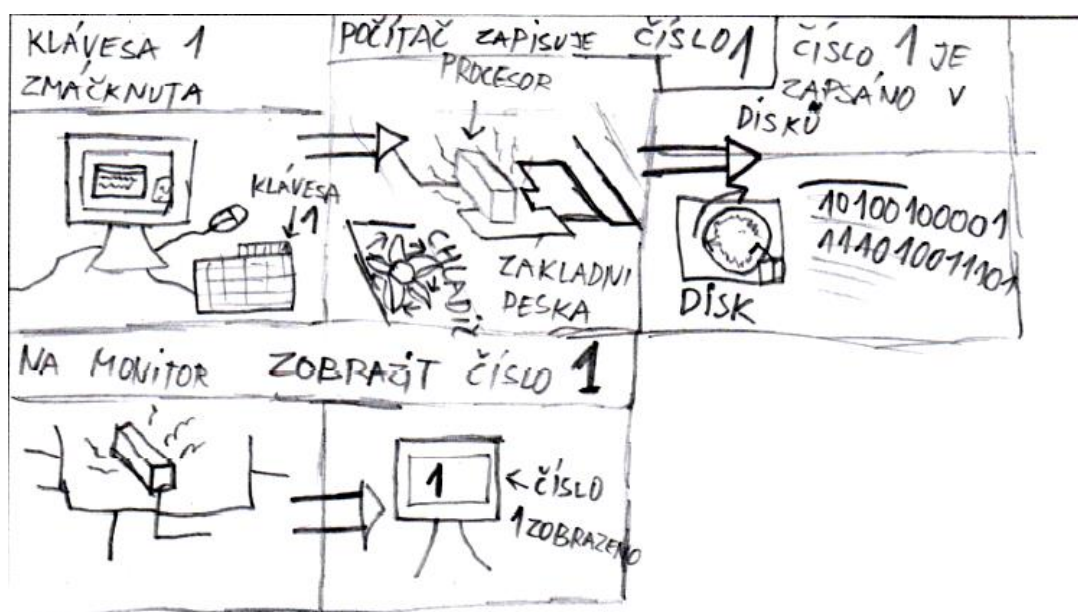 KLÁVESA 1
ZMÁČKNUTA
KLÁVESA
1
POČÍTAČ ZAPISUJE ČÍSLO 1
PROCESOR
CHLADIČ
ZAKLADNI
DESKA
ČÍSLO 1 JE
ZAPSÁNO V
DISKŮ
10100100001
111010011101
DISK
NA MONITOR ZOBRAZIT ČÍSLO 1
1
ČÍSLO
1 ZOBRAZENO